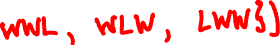 WWL, WLW, LWW})